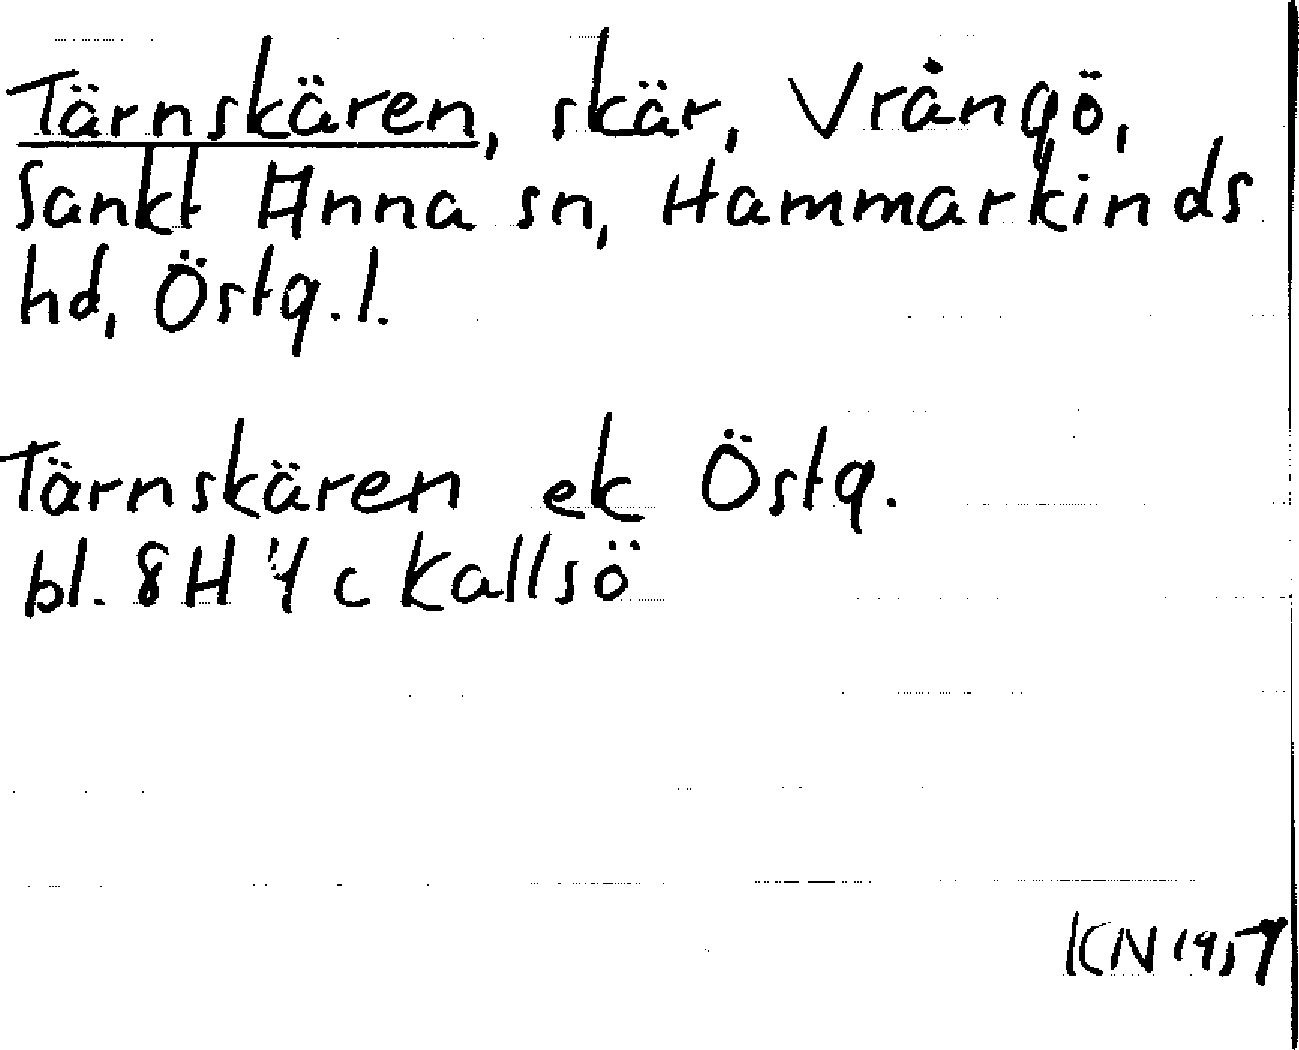 Tärnskären, skär, Vrångö,
Sankt Anna sn, Hammarkinds
hd, Östg. l.
Tärnskären ek Östg.
bl. 8H 4c Kallsö
KN 1957